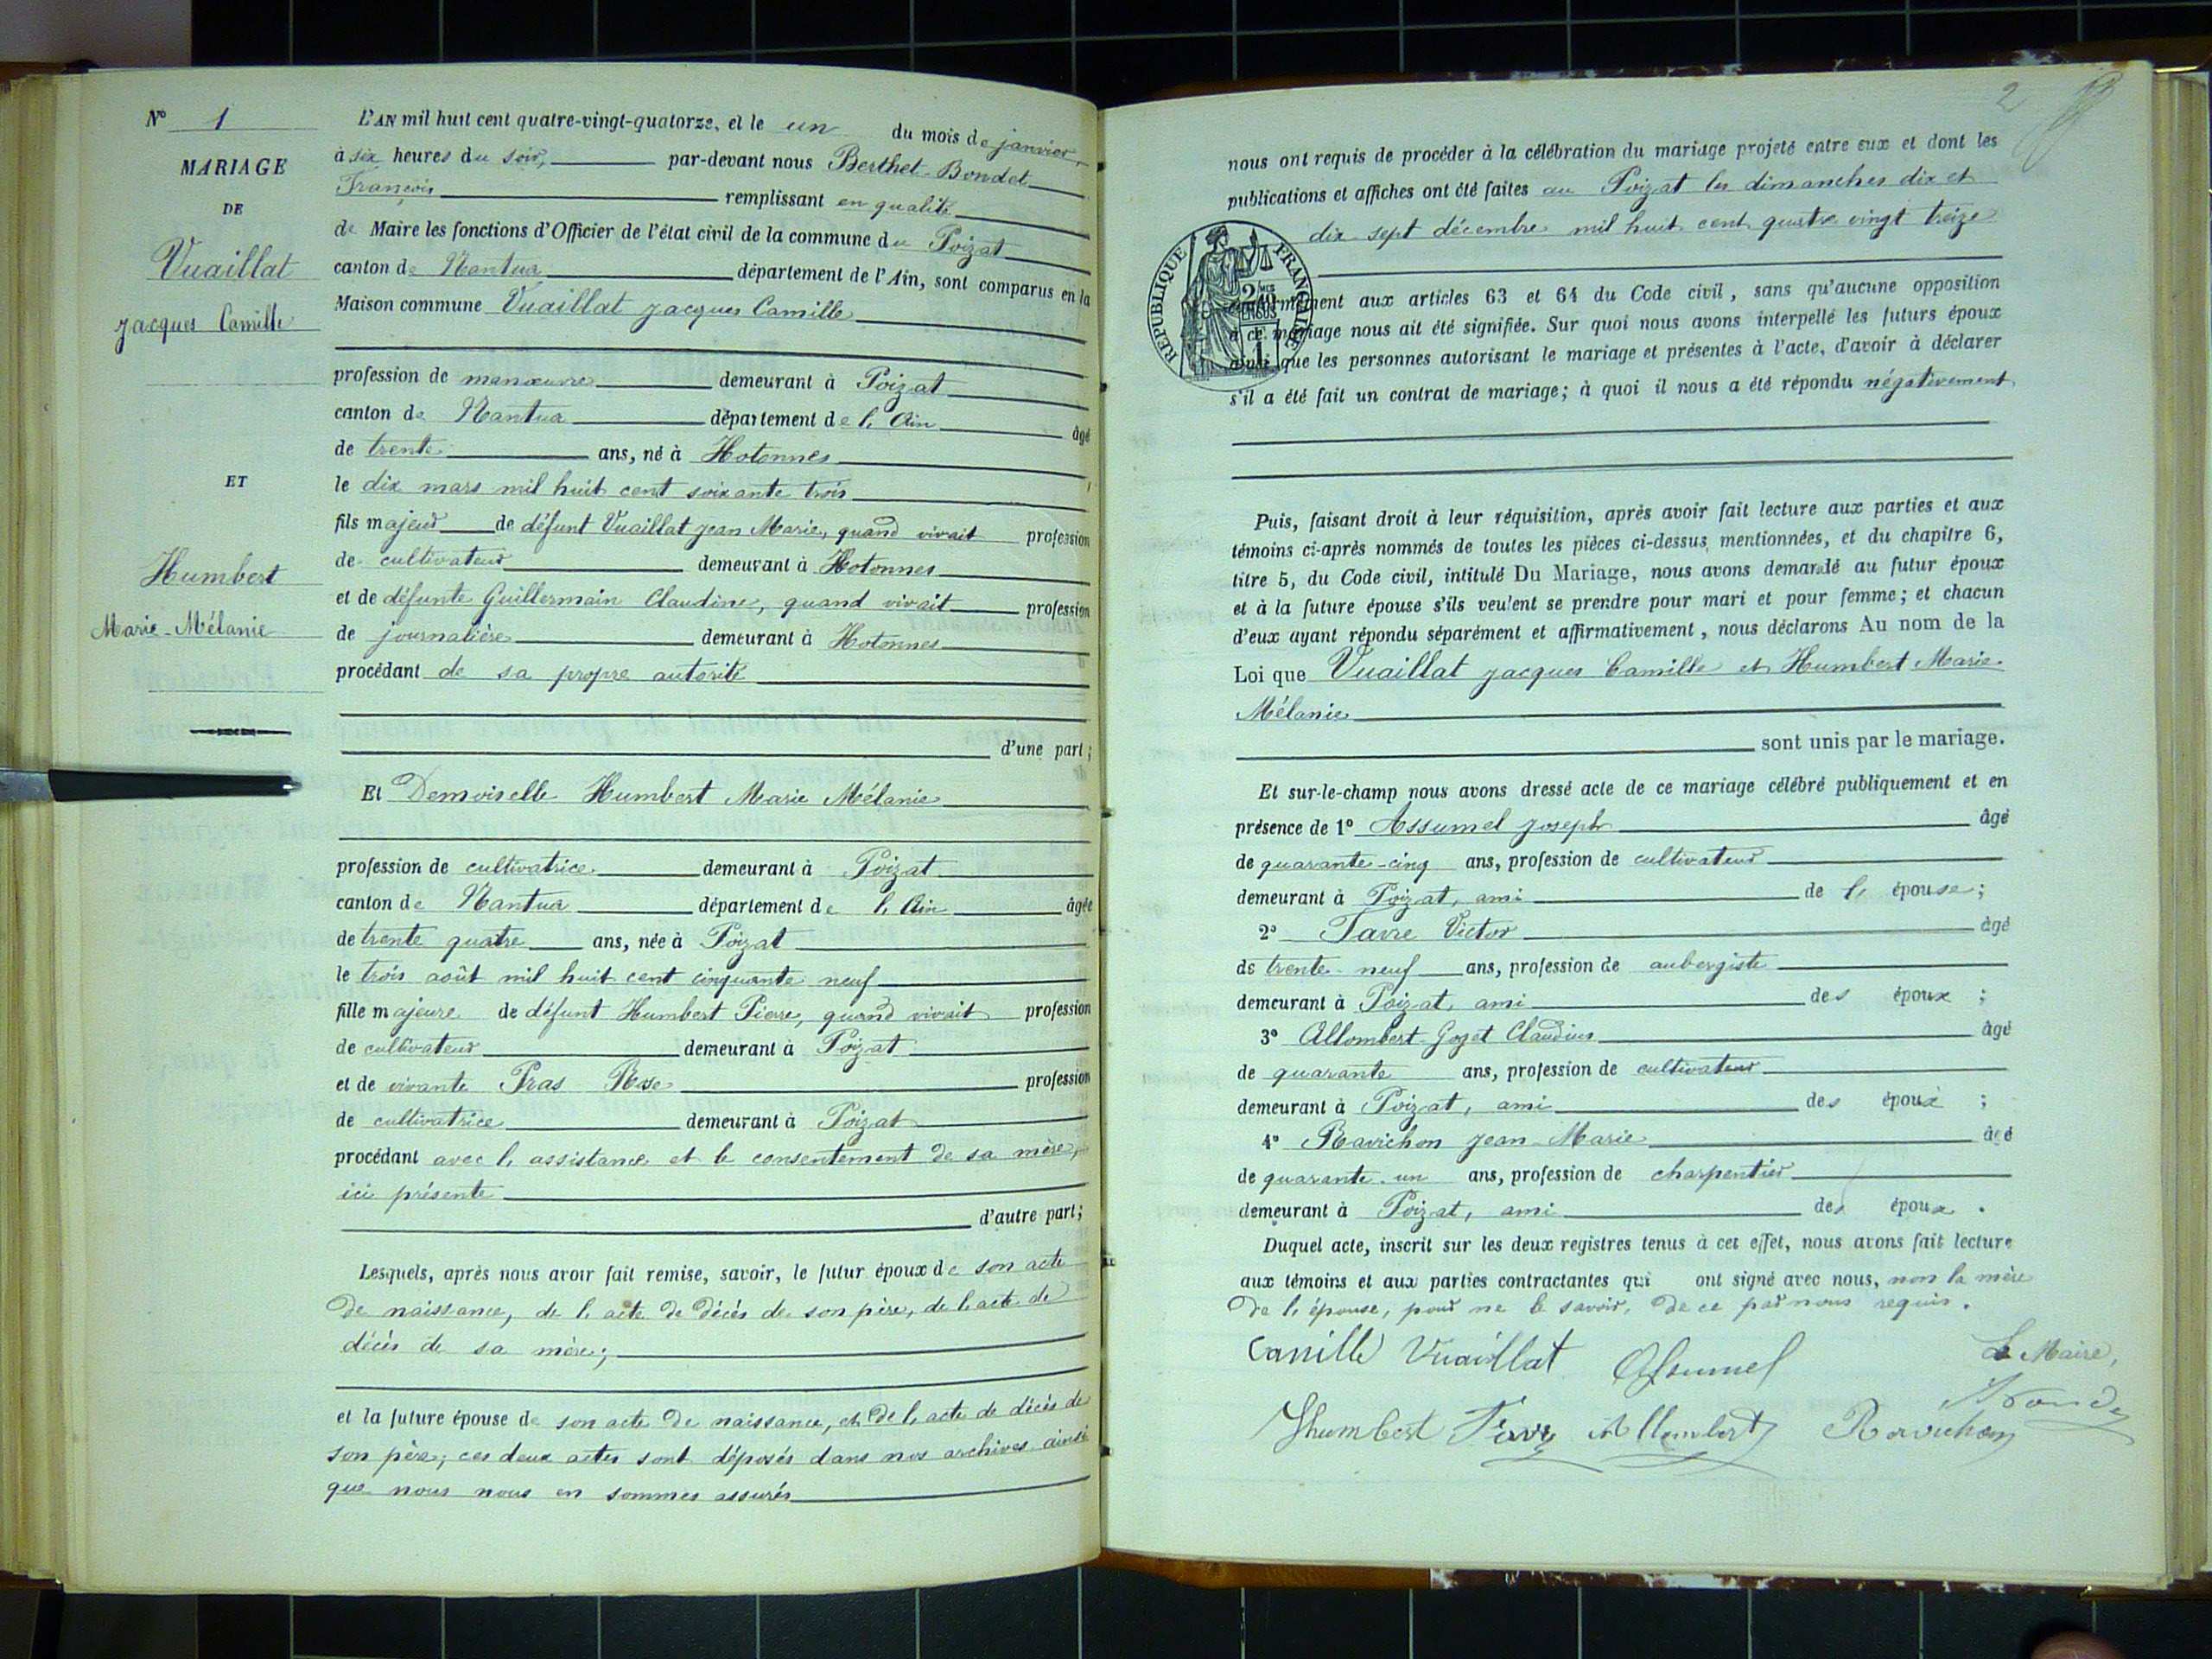 N° 1
MARIAGE
DE
Vuaillat
Jacques Camille
ET
Humbert
Marie-Mélanie
L'AN mil huit cent quatre-vingt-quatorze, et le un du mois de janvier,
à six heures du soir, par-devant nous Berthet-Bondet
François remplissant en qualité
de Maire les fonctions d'Officier de l'état civil de la commune du Poizat
canton de Nantua département de l'Ain, sont comparus en la
Maison commune Vuaillat Jacques Camille
profession de manœuvre demeurant à Poizat
canton de Nantua département de l'Ain âgé
de trente ans, né à Hotonnes
le dix mars mil huit cent soixante trois
fils majeur de défunt Vuaillat Jean Marie, quand vivait profession
de cultivateur demeurant à Hotonnes
et de défunte Guillermain Claudine, quand vivait profession
de journalière demeurant à Hotonnes
procédant de sa propre autorité
d'une part;
Et Demoiselle Humbert Marie Mélanie
profession de cultivatrice demeurant à Poizat
canton de Nantua département de l'Ain âgée
de trente quatre ans, née à Poizat
le trois août mil huit cent cinquante neuf
fille majeure de défunt Humbert Pierre, quand vivait profession
de cultivateur demeurant à Poizat
et de vivante Pras Rose profession
de cultivatrice demeurant à Poizat
procédant avec l'assistance et le consentement de sa mère,
ici présente
d'autre part;
Lesquels, après nous avoir fait remise, savoir, le futur époux de son acte
de naissance, de l'acte de décès de son père, de l'acte de
décès de sa mère;
et la future épouse de son acte de naissance, et de l'acte de décès de
son père; ces deux actes sont déposés dans nos archives ainsi
que nous nous en sommes assurés
2
nous ont requis de procéder à la célébration du mariage projeté entre eux et dont les
publications et affiches ont été faites au Poizat les dimanches dix et
dix-sept décembre mil huit cent quatre vingt treize
RÉPUBLIQUE FRANÇAISE
conformément aux articles 63 et 64 du Code civil, sans qu'aucune opposition
à ce mariage nous ait été signifiée. Sur quoi nous avons interpellé les futurs époux
ainsi que les personnes autorisant le mariage et présentes à l'acte, d'avoir à déclarer
s'il a été fait un contrat de mariage; à quoi il nous a été répondu négativement
Puis, faisant droit à leur réquisition, après avoir fait lecture aux parties et aux
témoins ci-après nommés de toutes les pièces ci-dessus mentionnées, et du chapitre 6,
titre 5, du Code civil, intitulé Du Mariage, nous avons demandé au futur époux
et à la future épouse s'ils veulent se prendre pour mari et pour femme; et chacun
d'eux ayant répondu séparément et affirmativement, nous déclarons Au nom de la
Loi que Vuaillat Jacques Camille et Humbert Marie
Mélanie
sont unis par le mariage.
Et sur-le-champ nous avons dressé acte de ce mariage célébré publiquement et en
présence de 1° Assumel Joseph âgé
de quarante-cinq ans, profession de cultivateur
demeurant à Poizat, ami de l'épouse;
2° Favre Victor âgé
de trente-neuf ans, profession de aubergiste
demeurant à Poizat, ami des époux;
3° Allombert-Goget Claudius âgé
de quarante ans, profession de cultivateur
demeurant à Poizat, ami des époux;
4° Ravichon Jean-Marie âgé
de quarante-un ans, profession de charpentier
demeurant à Poizat, ami des époux.
Duquel acte, inscrit sur les deux registres tenus à cet effet, nous avons fait lecture
aux témoins et aux parties contractantes qui ont signé avec nous, non la mère
de l'épouse, pour ne le savoir, de ce par nous requis.
Camille Vuaillat Assumel Le Maire,
Humbert Favre Allombert Ravichon